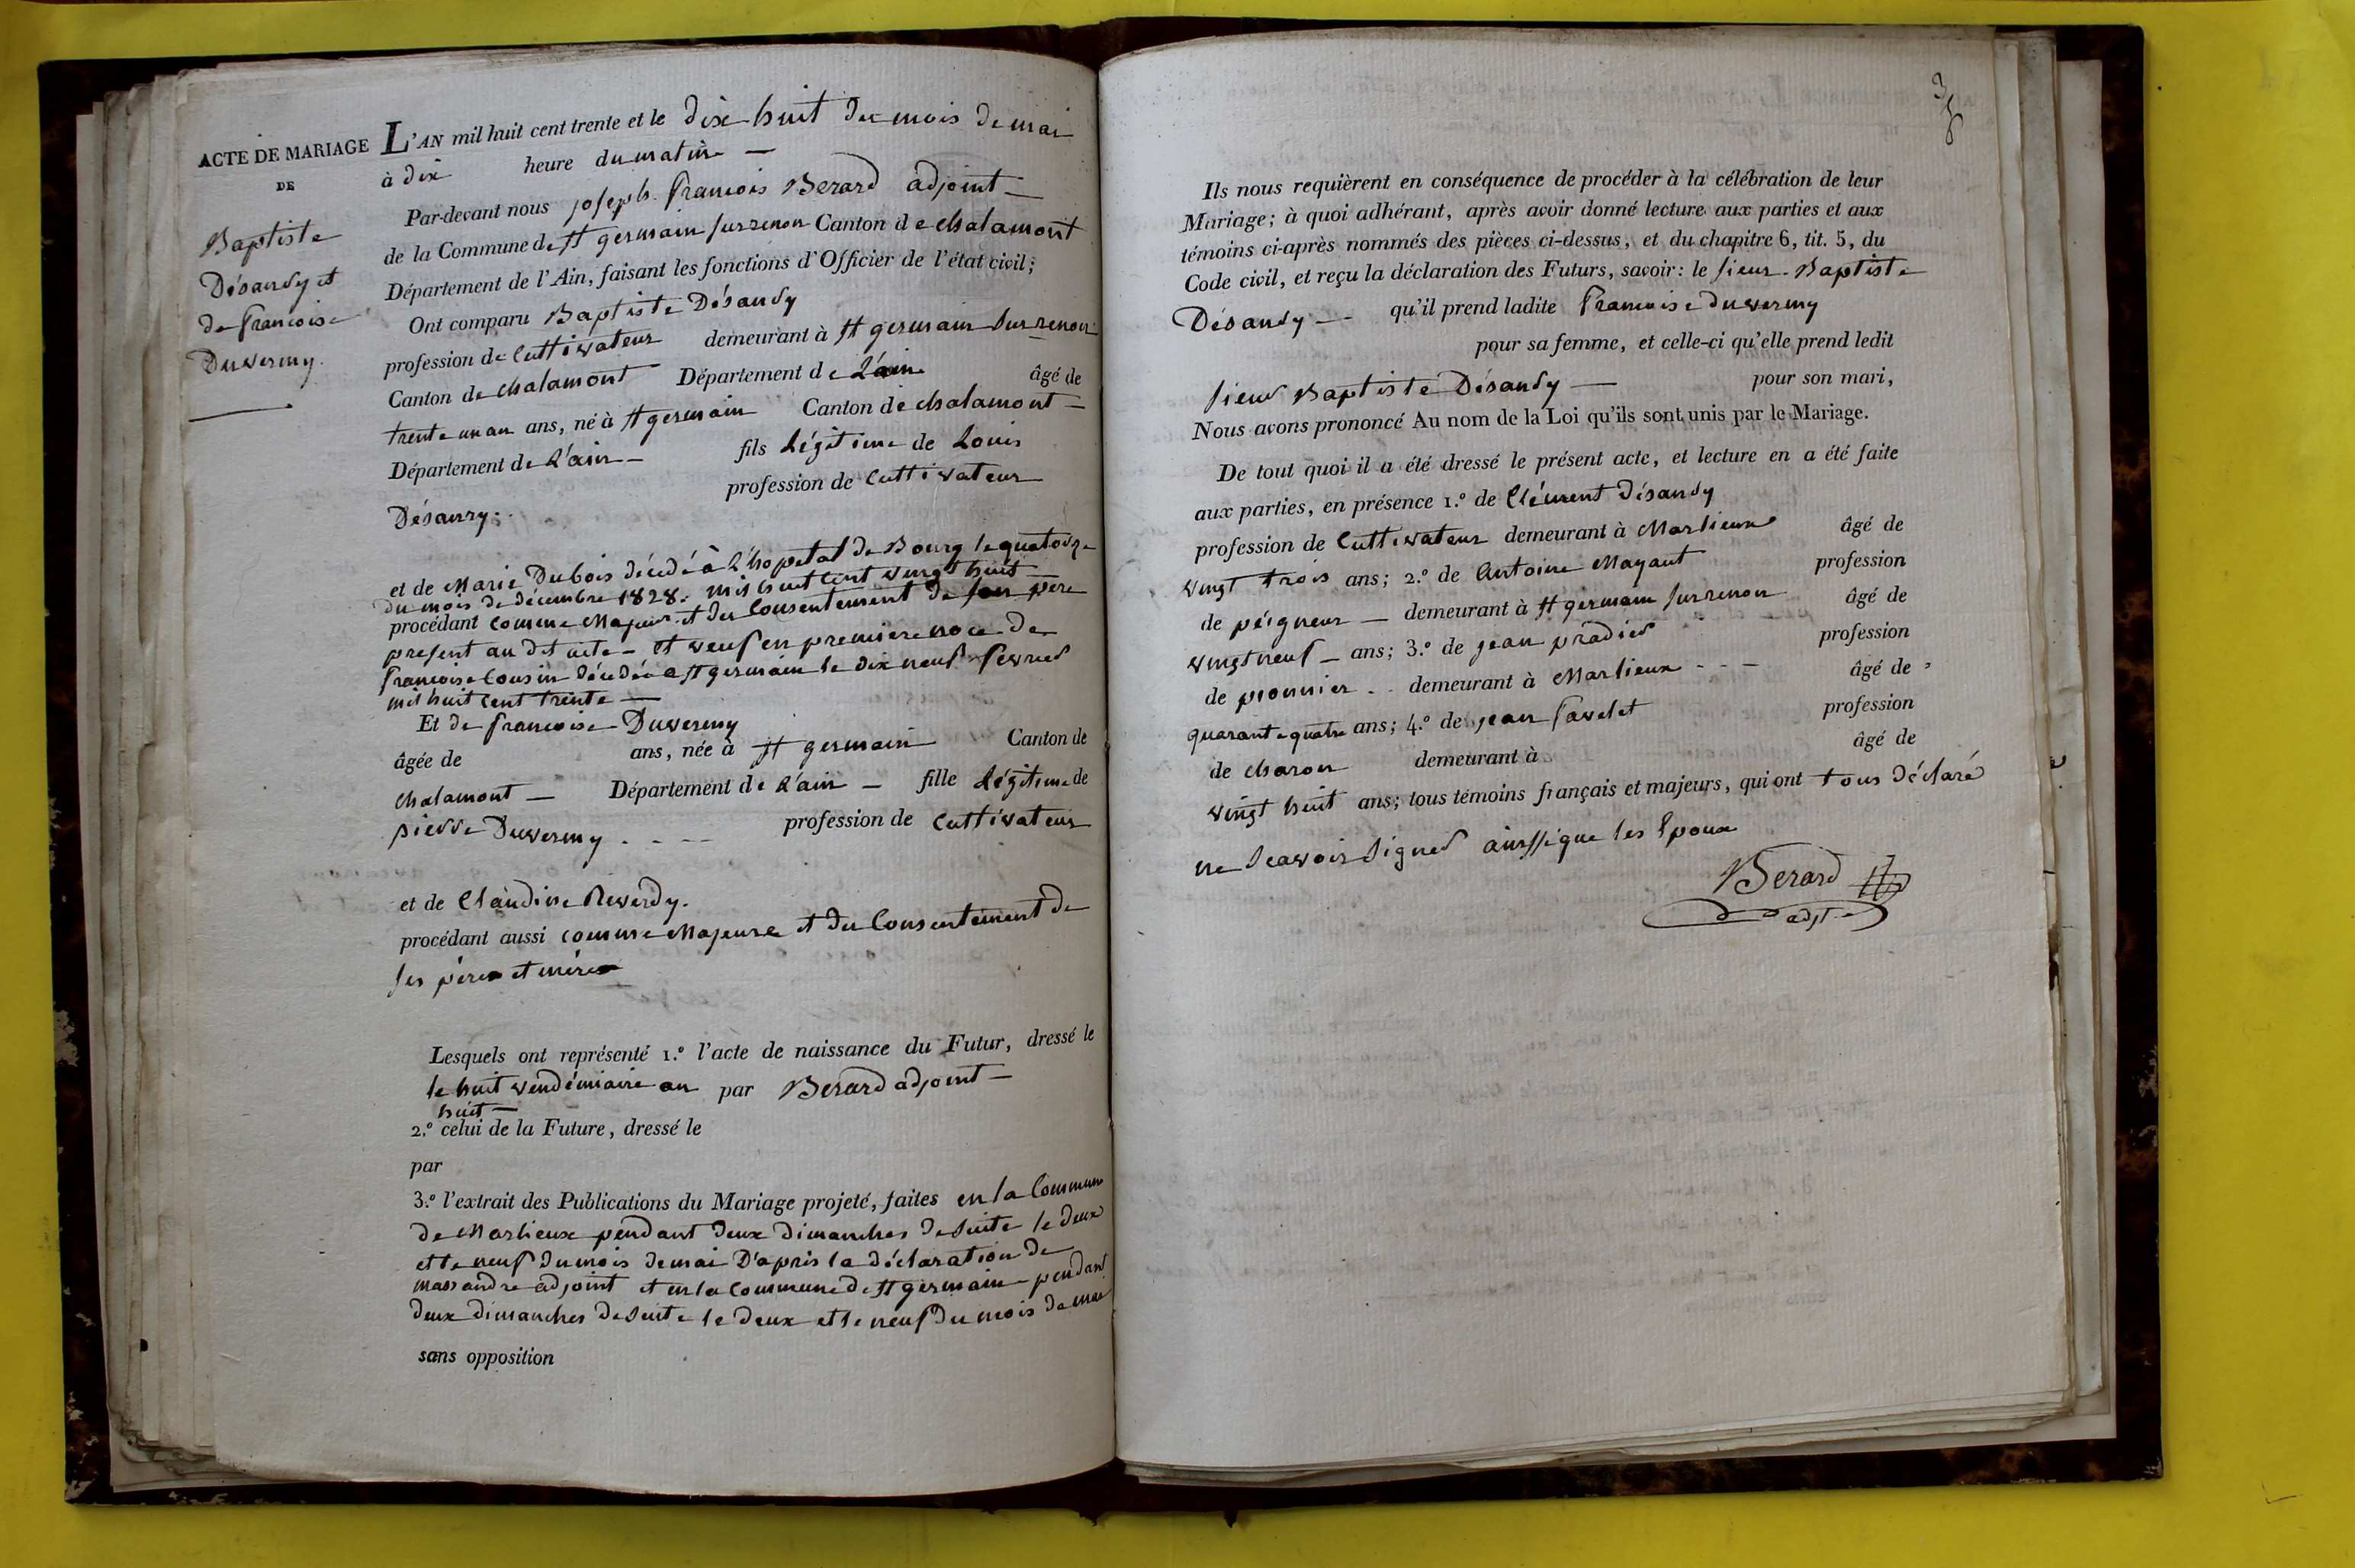 ACTE DE MARIAGE
DE
Baptiste
Désandy et
de francoise
Duvermy.
L'AN mil huit cent trente et le dix huit du mois de mai
à dix heure du matin —
Par-devant nous joseph francois Berard adjoint —
de la Commune de st germain sur renon Canton de chalamont
Département de l'Ain, faisant les fonctions d'Officier de l'état civil;
Ont comparu Baptiste Désandy
profession de Cultivateur demeurant à st germain sur renon
Canton de chalamont Département de L'ain âgé de
trente un an ans, né à st germain Canton de chalamont —
Département de L'ain — fils Légitime de Louis
profession de Cultivateur
Désanry.
et de Marie Dubois décédé à L'hopetal de Bourg le quatorze
du mois de décembre 1828. mil huit cent vingt huit
procédant comme Majeur et du Consentement de son père
présent au dit acte — et veuf en premiere noce de
francoise Cousin décédée a st germain le dix neuf fevrier
mil huit cent trente —
Et de francoise Duvermy
âgée de ans, née à st germain Canton de
chalamont — Département de L'ain — fille Légitime de
pierre Duvermy . - - — profession de Cultivateur
et de Claudine Reverdy.
procédant aussi comme Majeure et du Consentement de
ses père et mère
Lesquels ont représenté 1.º l'acte de naissance du Futur, dressé le
le huit vendémiaire an par Berard adjoint —
huit —
2.º celui de la Future, dressé le
par
3.º l'extrait des Publications du Mariage projeté, faites en la Commune
de Marlieux pendant deux dimanches de suite le deux
et le neuf du mois de mai D'après la déclaration de
massandre adjoint et en la Commune de st germain — pendant
deux dimanches de suite le deux et le neuf du mois de mai
sans opposition
3
Ils nous requièrent en conséquence de procéder à la célébration de leur
Mariage; à quoi adhérant, après avoir donné lecture aux parties et aux
témoins ci-après nommés des pièces ci-dessus, et du chapitre 6, tit. 5, du
Code civil, et reçu la déclaration des Futurs, savoir: le sieur Baptiste
Désandy — qu'il prend ladite francoise duvermy
pour sa femme, et celle-ci qu'elle prend ledit
sieur Baptiste Désandy — pour son mari,
Nous avons prononcé Au nom de la Loi qu'ils sont unis par le Mariage.
De tout quoi il a été dressé le présent acte, et lecture en a été faite
aux parties, en présence 1.º de Clément Désandy
profession de Cultivateur demeurant à Marlieux âgé de
vingt trois ans; 2.º de Antoine Mayant profession
de péigneur — demeurant à st germain sur renon âgé de
vingt neuf — ans; 3.º de jean pradier profession
de pionnier . . demeurant à Marlieux . - — âgé de
quarante quatre ans; 4.º de jean favelet profession
de charon demeurant à âgé de
vingt huit ans; tous témoins français et majeurs, qui ont tous déclaré
ne scavoir signer ainssi que les Epoux
Berard
adjt